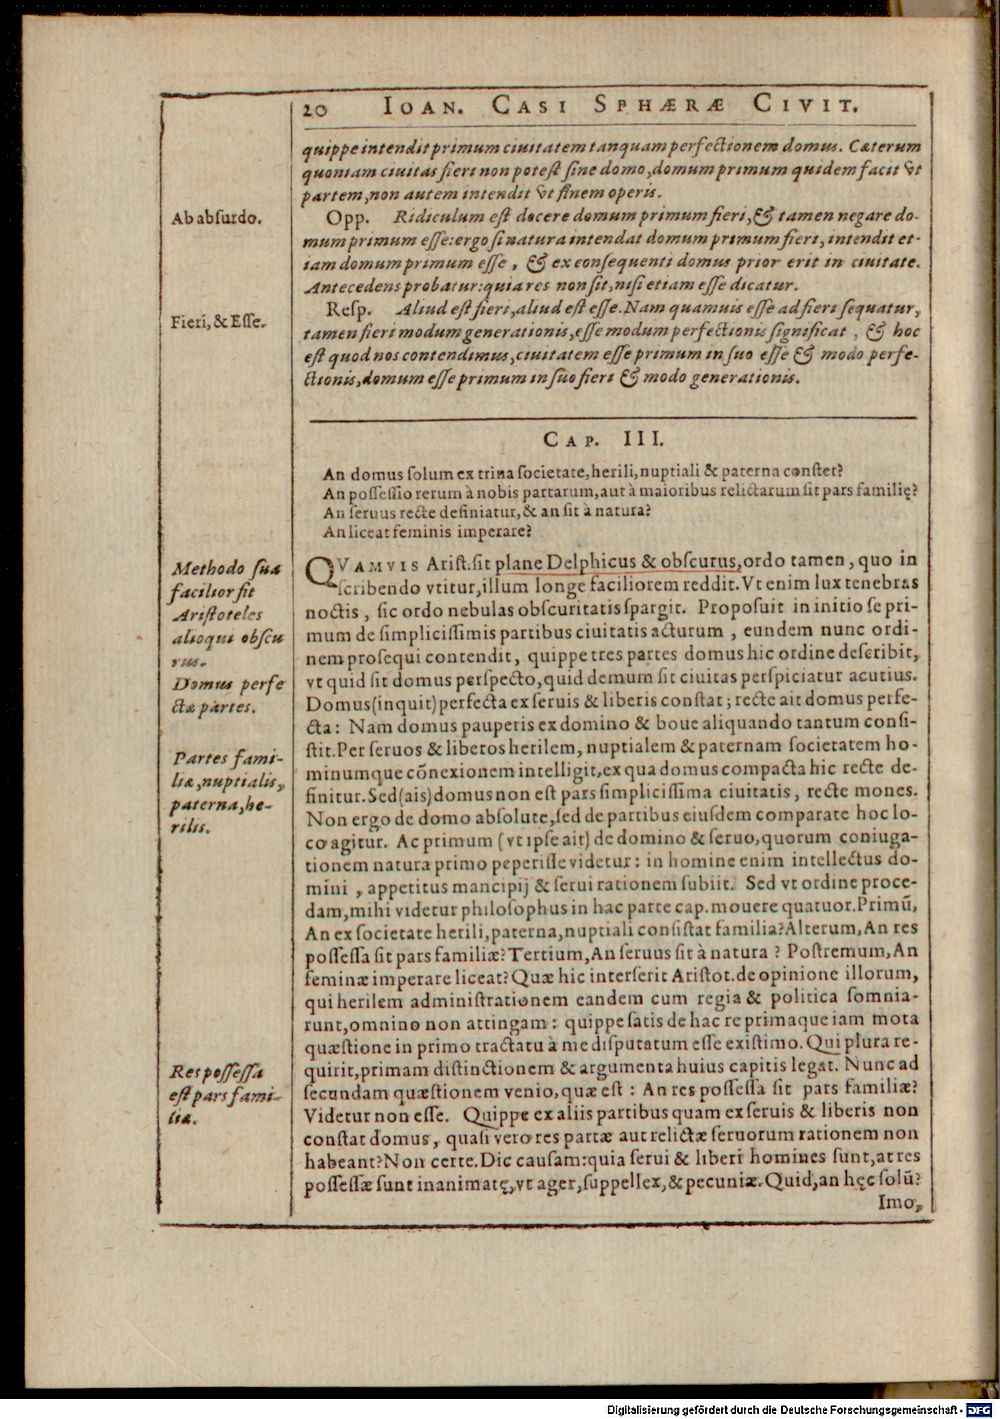 20 IOAN. CASI SPHÆRÆ CIVIT.
quippe intendit primum ciuitatem tanquam perfectionem domus. Cæterum
quoniam ciuitas fieri non potest sine domo, domum primum quidem facit vt
partem, non autem intendit vt finem operis.
Ab absurdo.
Opp. Ridiculum est docere domum primum fieri, & tamen negare do-
mum primum esse: ergo si natura intendat domum primum fieri, intendit et-
iam domum primum esse, & ex consequenti domus prior erit in ciuitate.
Antecedens probatur: quia res non sit, nisi etiam esse dicatur.
Fieri, & Esse.
Resp. Aliud est fieri, aliud est esse. Nam quamuis esse ad fieri sequatur,
tamen fieri modum generationis, esse modum perfectionis significat, & hoc
est quod nos contendimus, ciuitatem esse primum in suo esse & modo perfe-
ctionis, domum esse primum in suo fieri & modo generationis.
CAP. III.
An domus solum ex trina societate, herili, nuptiali & paterna constet?
An possessio rerum à nobis partarum, aut à maioribus relictarum sit pars familię?
An seruus recte definiatur, & an sit à natura?
An liceat feminis imperare?
Methodo sua
facilior fit
Aristoteles
alioqui obscu
rus.
Domus perfe
ctæ partes.
Partes fami-
liæ, nuptialis,
paterna, he-
rilis.
QVAMVIS Arist. sit plane Delphicus & obscurus, ordo tamen, quo in
scribendo vtitur, illum longe faciliorem reddit. Vt enim lux tenebras
noctis, sic ordo nebulas obscuritatis spargit. Proposuit in initio se pri-
mum de simplicissimis partibus ciuitatis acturum, eundem nunc ordi-
nem prosequi contendit, quippe tres partes domus hic ordine describit,
vt quid sit domus perspecto, quid demum sit ciuitas perspiciatur acutius.
Domus (inquit) perfecta ex seruis & liberis constat; recte ait domus perfe-
cta: Nam domus pauperis ex domino & boue aliquando tantum consi-
stit. Per seruos & liberos herilem, nuptialem & paternam societatem ho-
minumque cõnexionem intelligit, ex qua domus compacta hic recte de-
finitur. Sed (ais) domus non est pars simplicissima ciuitatis, recte mones.
Non ergo de domo absolute, sed de partibus eiusdem comparate hoc lo-
co agitur. Ac primum (vt ipse ait) de domino & seruo, quorum coniuga-
tionem natura primo peperisse videtur: in homine enim intellectus do-
mini, appetitus mancipij & serui rationem subiit. Sed vt ordine proce-
dam, mihi videtur philosophus in hac parte cap. mouere quatuor. Primũ,
An ex societate herili, paterna, nuptiali consistat familia? Alterum, An res
possessa sit pars familiæ? Tertium, An seruus sit à natura? Postremum, An
feminæ imperare liceat? Quæ hic interserit Aristot. de opinione illorum,
qui herilem administrationem eandem cum regia & politica somnia-
runt, omnino non attingam: quippe satis de hac re primaque iam mota
quæstione in primo tractatu à me disputatum esse existimo. Qui plura re-
quirit, primam distinctionem & argumenta huius capitis legat. Nunc ad
secundam quæstionem venio, quæ est: An res possessa sit pars familiæ?
Videtur non esse. Quippe ex aliis partibus quam ex seruis & liberis non
constat domus, quasi vero res partæ aut relictæ seruorum rationem non
habeant? Non certe. Dic causam: quia serui & liberi homines sunt, at res
possessæ sunt inanimatę, vt ager, suppellex, & pecuniæ. Quid, an hęc solũ?
Res possessa
est pars fami-
liæ.
Imo,
Digitalisierung gefördert durch die Deutsche Forschungsgemeinschaft - DFG